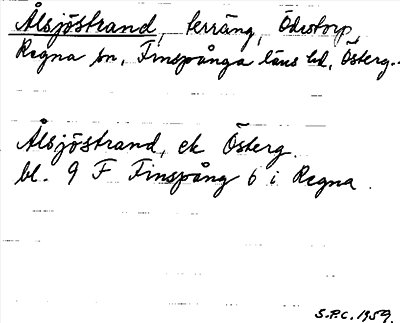 Ålsjöstrand, terräng, Ödestorp,
Regna sn, Finspånga läns hd, Österg.
Ålsjöstrand, ek Österg.
bl. 9 F Finspång 6 i Regna.
S.P.C. 1959.